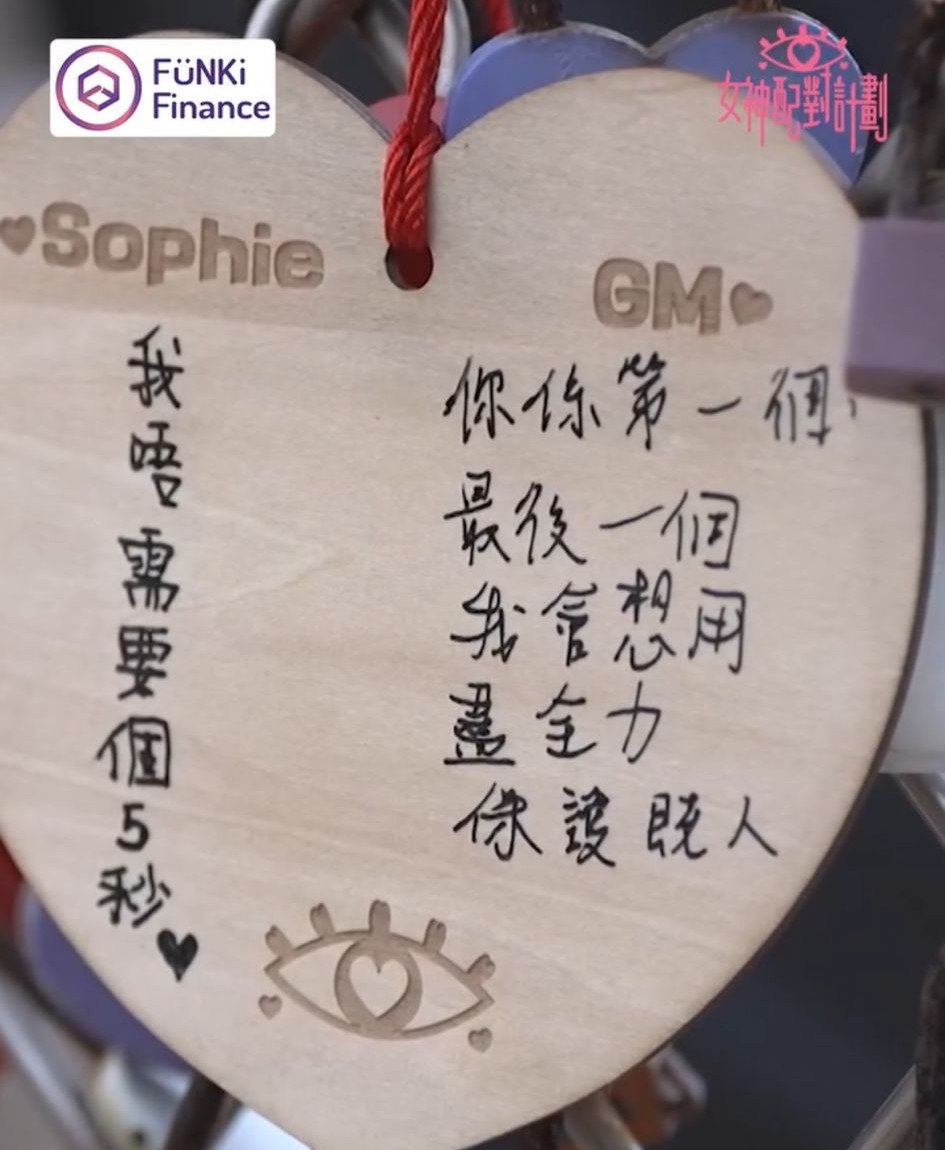 FüNKi
Finance
女神配對計劃
Sophie
GM
我唔需要個5秒
你係第一個,
最後一個
我會想用
盡全力
保護既人